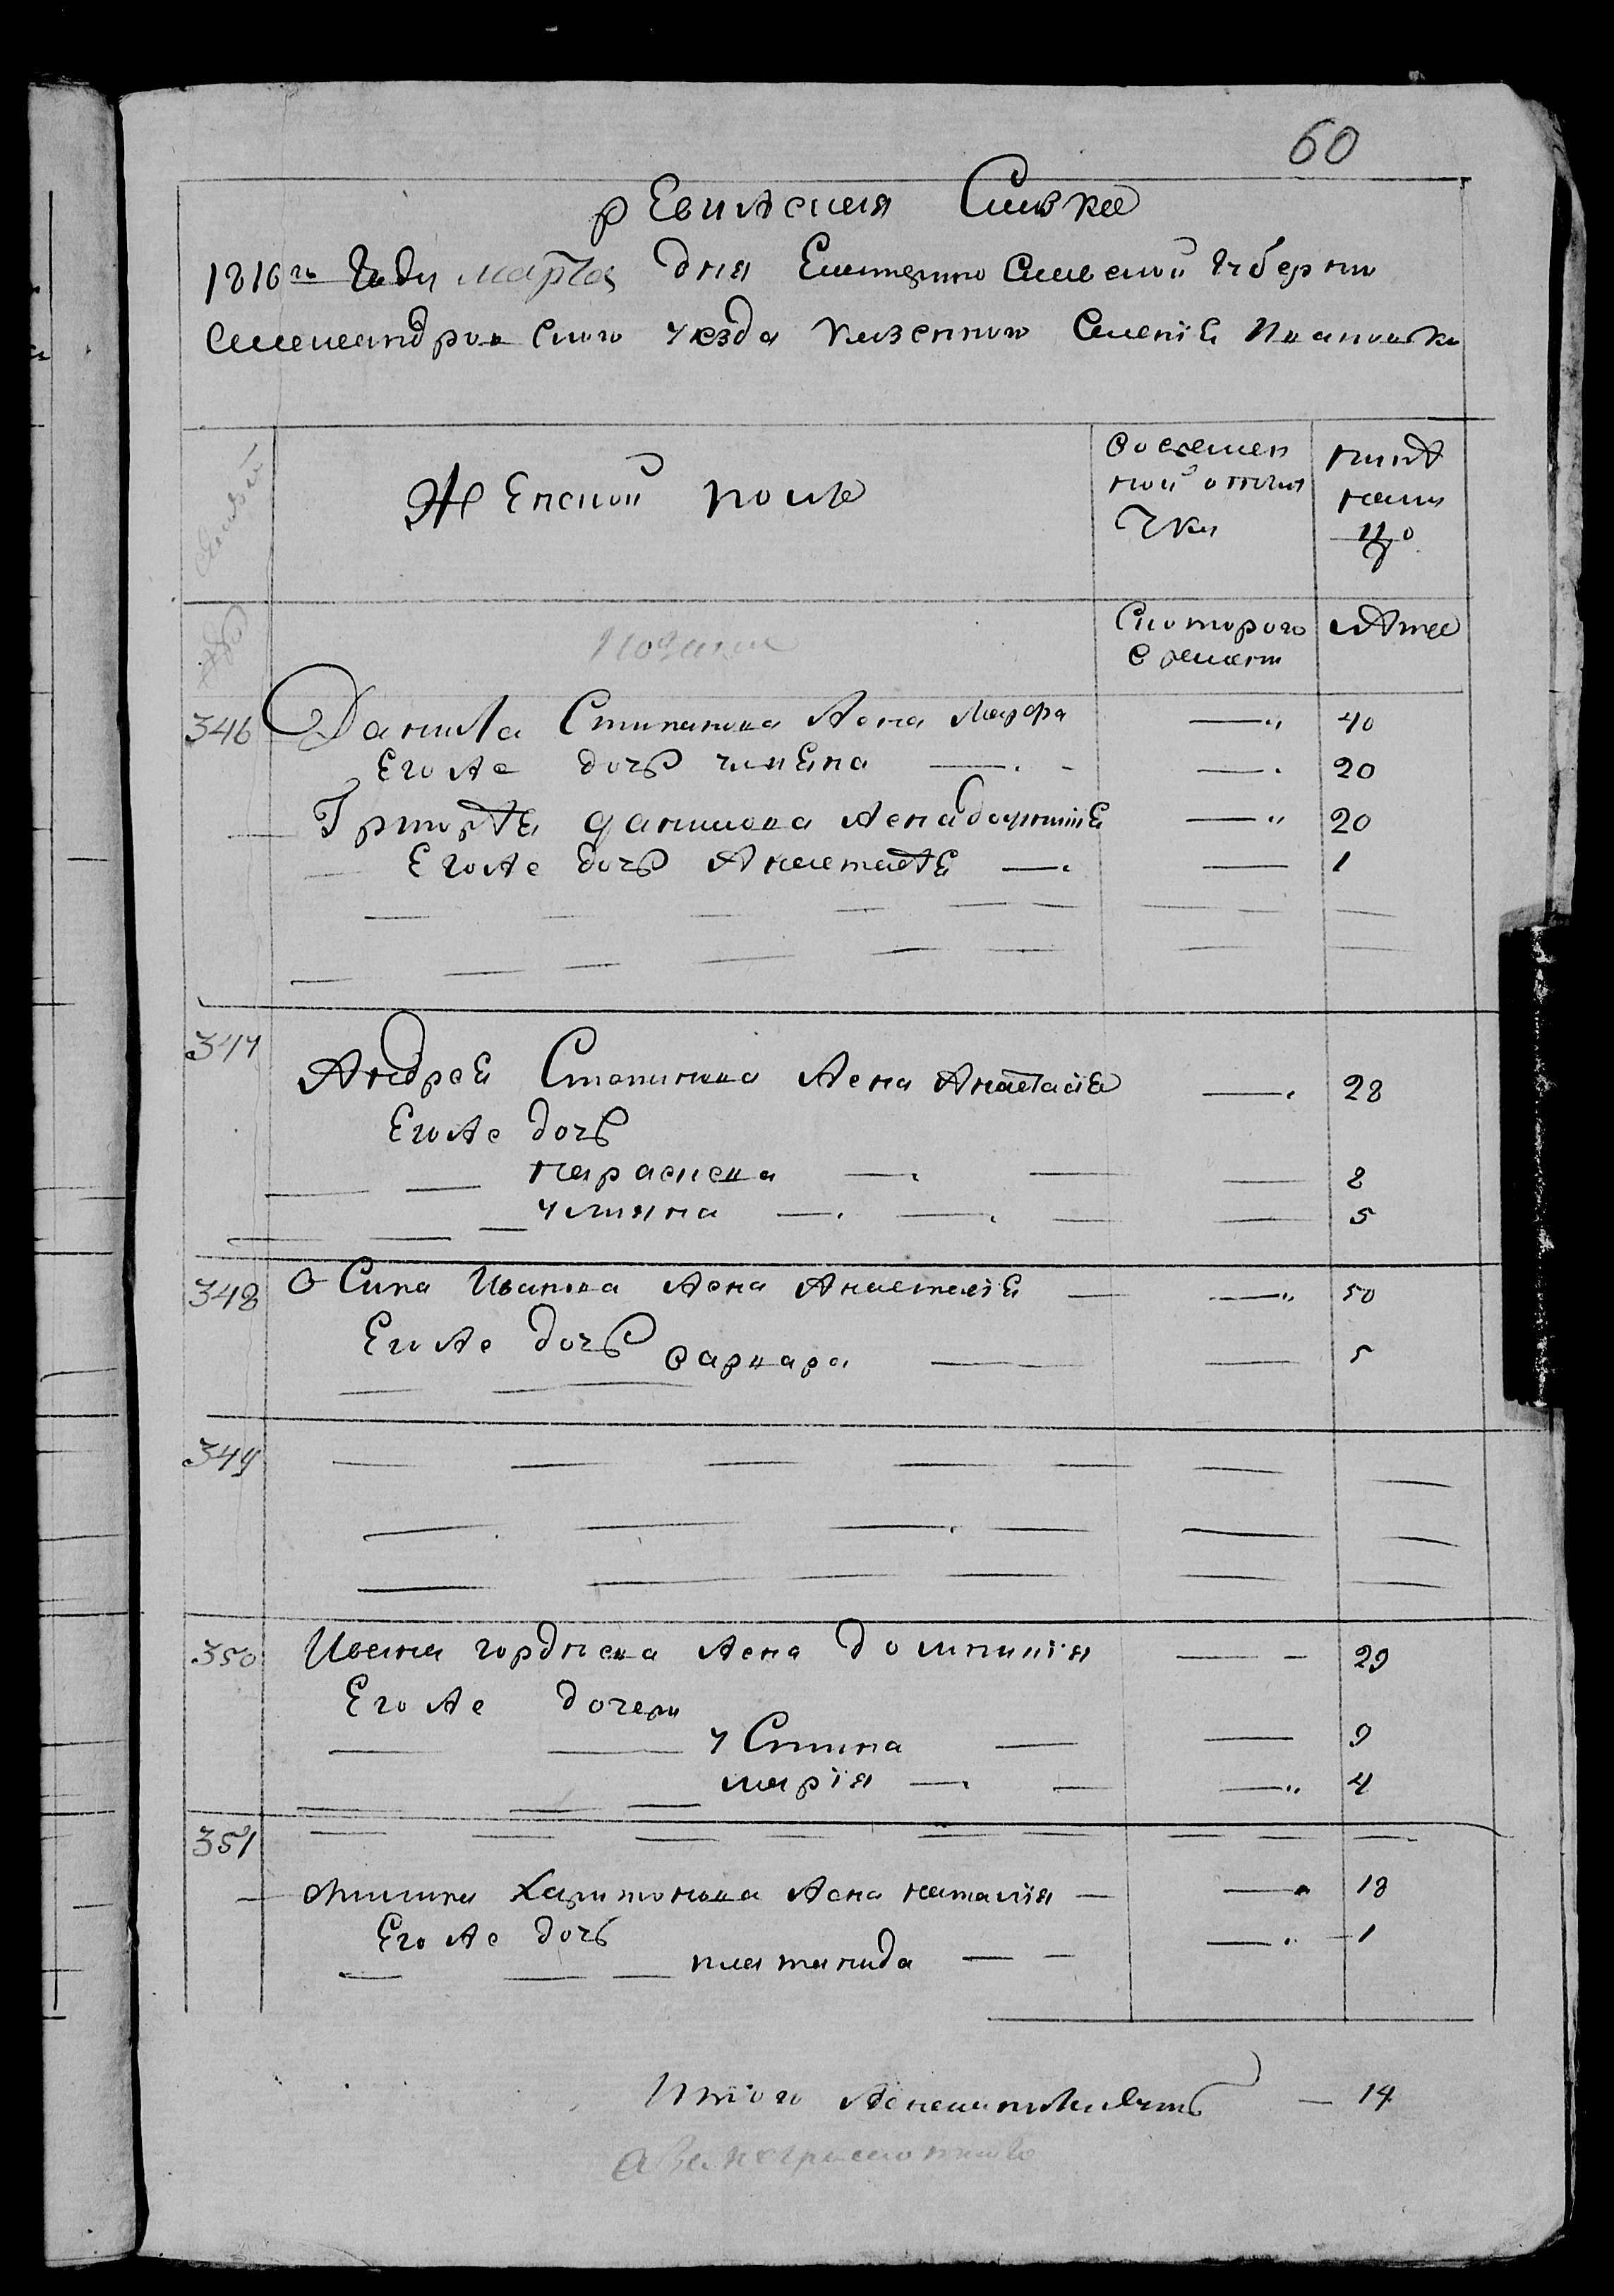 60
ревижская Сказка
1816го Году марта дня Екатерино Славской губерни
Александровского уезда казенного Селенiя Ивановки
Женской полъ
Во время
ной отлу
чки
нынѣ
на ли
цо
Скоторого
времени
лѣта
346 Данила Стипанова жена Марфа 40
Его же дочь 20
Григорѣя данилова жена 20
Его же дочь Анастасѣя 1
347
Андрея Степанова жена Анастасiя 28
Его же дочь
параскева 8
улияна 5
348 Осипа Иванова жена Анастасiя 50
Его же дочь варвара 5
349
350 Ивана гордеева жена домникiя 29
Его же дочери
устина 9
марiя 4
351
Харитонова жена наталия 18
Его же дочь 1
платанида
Итого женска 14